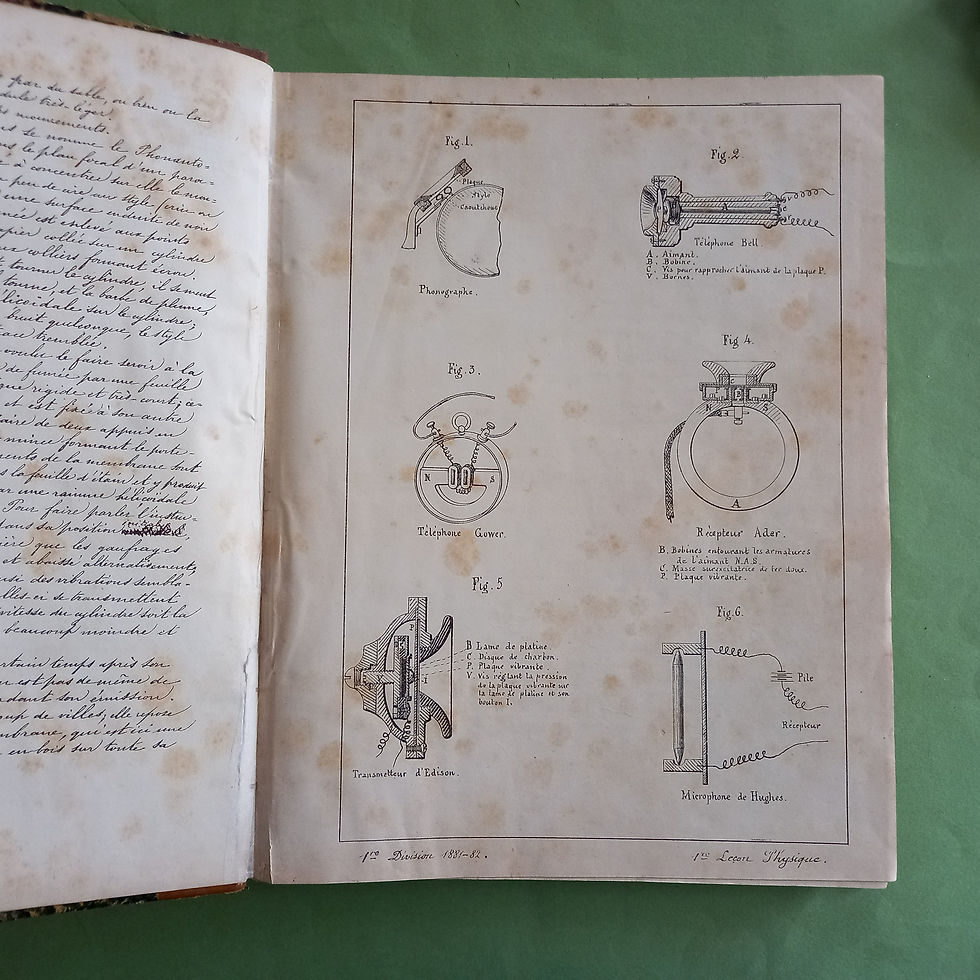 par du sable, ou bien ou la
très léger.
mouvements.
se nomme le Phonauto-
le plan focal d'un parou-
à concentrer sur elle le mou-
peu de cire un style
une surface enduite de noir
est enlevé aux points
collée sur un cylindre
colliers formant écrou.
tourner le cylindre, il se meut
tourne, et la barbe de plume,
hélicoïdale sur le cylindre,
bruit quelconque, le style
tremblée.
voulu le faire servir à la
de fumée par une feuille
rigide et très court; ce-
et est fixée à son autre
de deux appuis en
mince formant le porte-
de la membrane sont
la feuille d'étain et y produit
une rainure hélicoïdale
Pour faire parler l'instru-
dans sa position
que les gaufrages
et abaissé alternativement,
des vibrations sembla-
celles-ci se transmettent
vitesse du cylindre soit la
beaucoup moindre et
certain temps après son
n'en est pas de même de
pendant son émission,
de villes, elle repose
membrane, qui est ici une
en bois sur toute sa
Fig. 1.
Plaque
Style
Caoutchouc
Phonographe.
Fig. 2
A
Téléphone Bell
A. Aimant.
B. Bobine.
C. Vis pour rapprocher l'aimant de la plaque P.
V. Bornes.
Fig. 3.
N S
Téléphone Gower.
Fig 4.
C
B
N S
A
Récepteur Ader.
B. Bobines entourant les armatures
de l'aimant N.A.S.
C. Masse surexcitatrice de fer doux.
P. Plaque vibrante.
Fig. 5
P
I
B Lame de platine.
C. Disque de charbon.
P. Plaque vibrante.
V. Vis réglant la pression
de la plaque vibrante sur
la lame de platine et son
bouton I.
Transmetteur d'Edison.
Fig. 6.
Pile
Récepteur
Microphone de Hughes.
1re Division 1881-82.
1re Leçon Physique.